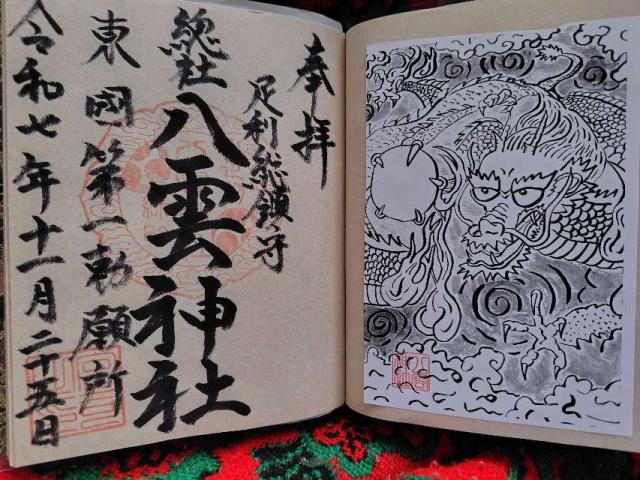 奉拝
足利総鎮守
總社
八雲神社
東國第一勅願所
令和七年十一月二十五日